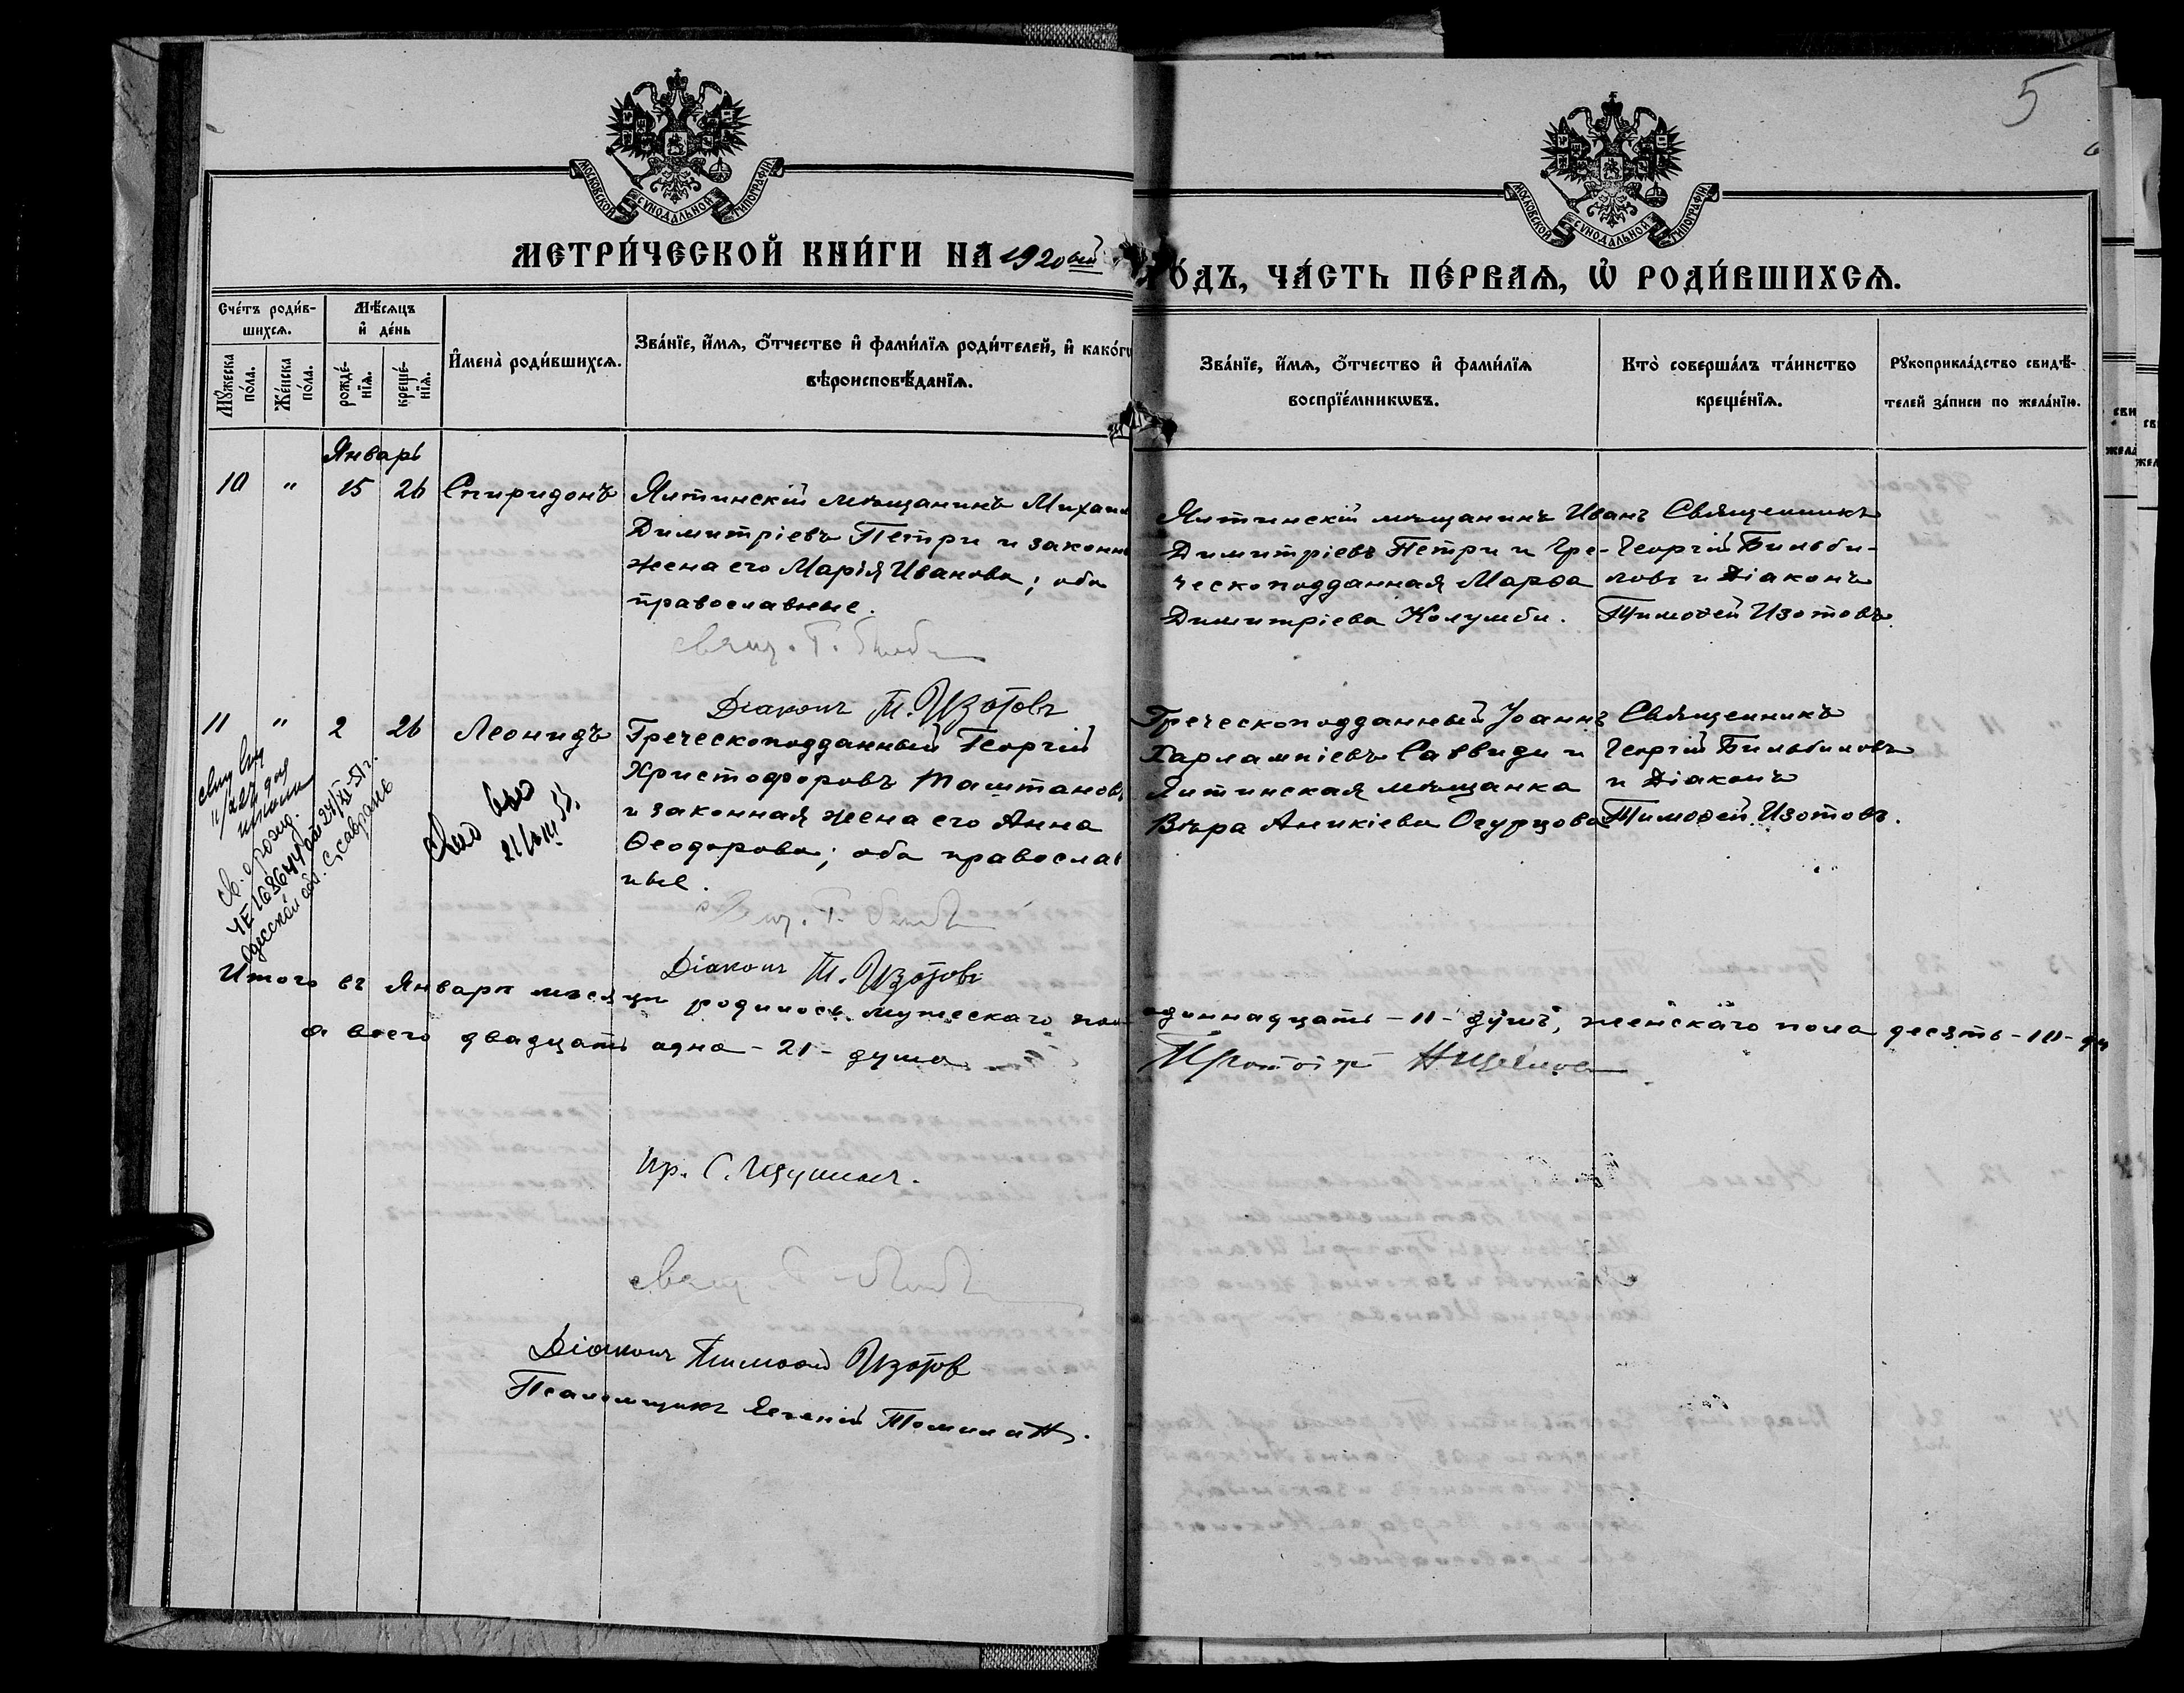 5
МОСКОВСКОЙ СУНОДАЛЬНОЙ ТИПОГРАФІИ
МОСКОВСКОЙ СУНОДАЛЬНОЙ ТИПОГРАФІИ
МЕТРИ́ЧЕСКОЙ КНИ́ГИ НА 1920ый
ГО́ДЪ, ЧА́СТЬ ПЕ́РВАѦ, Ѡ РОДИ́ВШИХСѦ.
Сче́тъ роди́в-
шихсѧ.
Мѣ́сѧцъ
и҆ де́нь
Мꙋ́жеска по́ла.
Же́нска по́ла.
рожде́-
нїѧ.
креще́-
нїѧ.
И҆мена̀ роди́вшихсѧ.
Зва́нїе, и҆́мѧ, ѻ҆́тчество и҆ фами́лїѧ роди́телей, и҆ како́гѡ
вѣроисповѣ́данїѧ.
Зва́нїе, и҆́мѧ, ѻ҆́тчество и҆ фами́лїѧ
воспрїе́мникѡвъ.
Кто̀ соверша́лъ та́инство
креще́нїѧ.
Рꙋкоприкла́дство свидѣ́-
телей за́писи по жела́нїю.
Январь
10 " 15 26 Спиридонъ
Ялтинскій мѣщанинъ Михаил
Димитріевъ Петри и законн
жена его Марія Иванова; оба
православные.
Свящ. Г.
Діаконъ Т. Изотовъ
Ялтинскій мѣщанинъ Иванъ
Димитріевъ Петри и Гре-
ческоподданная Марѳа
Димитріева Колумби.
Священникъ
Георгій Бильби-
новъ и Діаконъ
Тимоѳей Изотовъ.
11 " 2 26 Леонидъ
Греческоподданный Георгій
Христофоровъ Таштановъ
и законная жена его Анна
Ѳеодорова; оба православ
ные.
Свящ. Г.
Діаконъ Т. Изотовъ
Греческоподданный Іоаннъ
Харлампіевъ Саввиди и
Ялтинская мѣщанка
Вѣра Аникіева Огурцова
Священникъ
Георгій Бильбиновъ
и Діаконъ
Тимоѳей Изотовъ.
св. о рожд.
Одесской обл. С. Саврань
Итого въ Январѣ мѣсяцѣ родилось мужескаго пол
одиннадцать - 11 - душъ, женскаго пола десять - 10 - ду
а всего двадцать одна - 21 - душа
Пр. С. Щукинъ.
Свящ. Г.
Діаконъ Тимоѳей Изотов
Псаломщикъ Евгеній